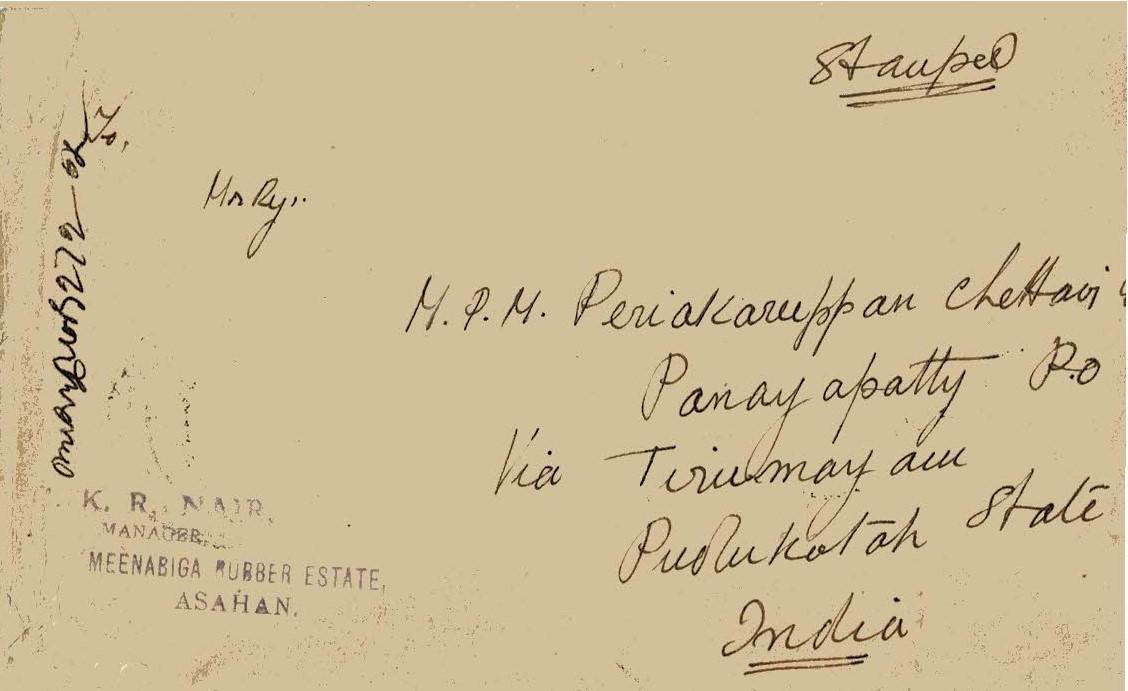 Stamped
To,
M. R. Ry..
M. P. M. Periakaruppan Chettair
Panayapatty P.o
Via Tirumayam
Pudukotah State
India
K. R. NAIR,
MANAGER,
MEENABIGA RUBBER ESTATE,
ASAHAN.